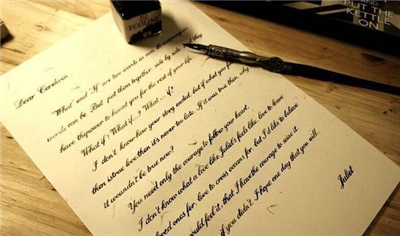 PUT THE
KETTLE
ON
Dear
"What" and "If" are two words as non
words can be. But put them together side by side
have the power to haunt you for the rest of your life.
What if? What if? What .... if?
I don't know how your story ended, but if what you
then is true love then it's never too late. If it was true then, why
it wouldn't be true now?
You need only the courage to follow your heart.
I don't know what a love like Juliet's feels like love to have
loved ones for love to cross oceans for but I'd like to believe
would feel it, that I have the courage to seize it.
if you didn't I hope one day that you will.
Juliet